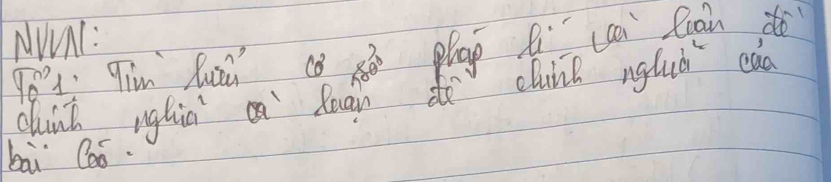 NVVN:
Tổ 1: Tìm hiểu cơ sở pháp lí và luận đề
chính nghĩa và luận đề chính nghĩa của
bài Cáo.